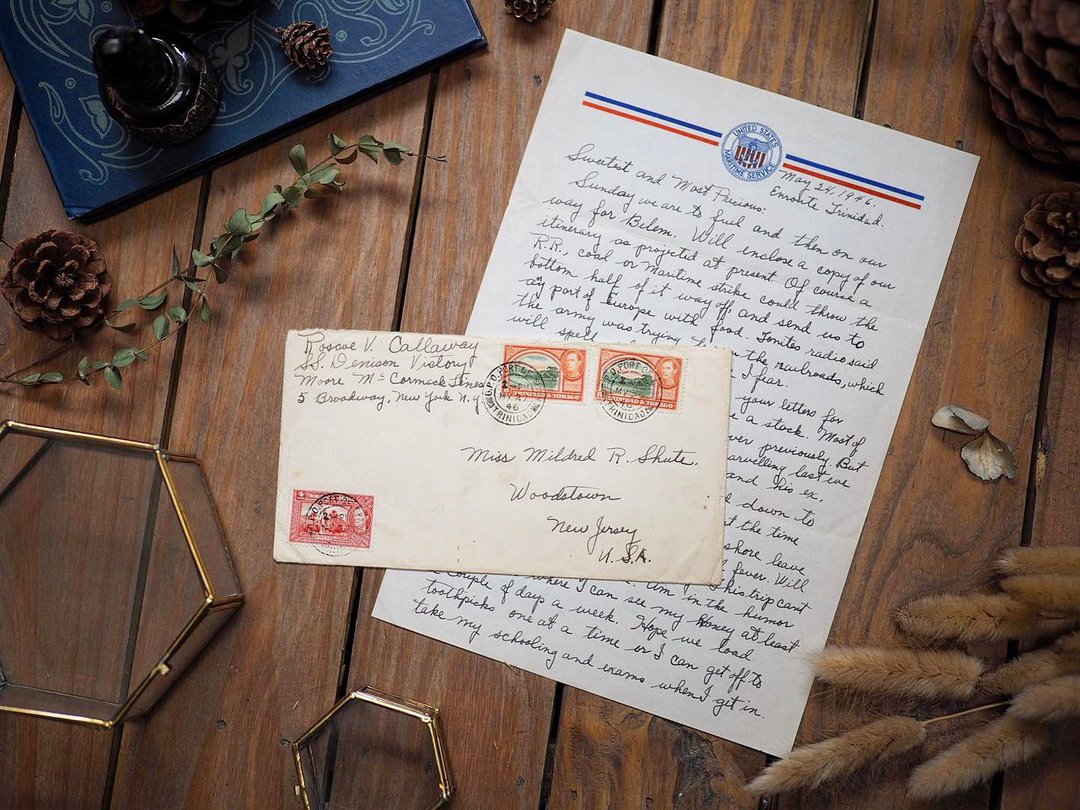 UNITED STATES
MARITIME SERVICE
May 24, 1946.
Enroute Trinidad.
Sweetest and Most Precious:
Sunday we are to fuel and then on our
way for Belem. Will enclose a copy of our
itinerary as projected at present. Of course a
R.R., coal or Maritime strike could throw the
bottom half of it way off, and send us to
any port of Europe with food. Tonites radio said
the army was trying the railroads, which
will spell I fear.
your letters for
a stock. Most of
previously. But
marvelling last we
and his ex,
down to
the time
shore leave
fever. Will
this trip cant
where I can see in the humor
couple of days a week. my Honey at least
toothpicks one at a time or Hope we load
take my schooling and exams I can get off to
when I get in.
Roscoe V. Callaway
SS. Denison Victory
Moore McCormack Lines
5 Broadway, New York N.Y.
G.P.O. PORT
46
TRINIDAD
TRINIDAD & TOBAGO
TRINIDAD & TOBAGO
Miss Mildred R. Shute.
Woodstown
New Jersey
U.S.A.